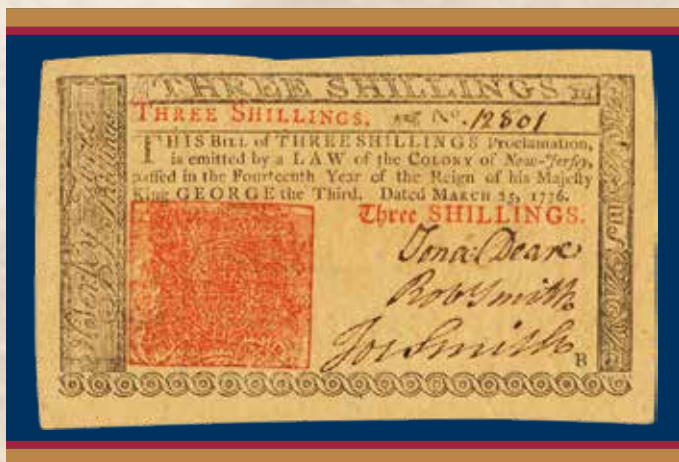 THREE SHILLINGS
THREE SHILLINGS. No. 12801
THIS BILL of THREE SHILLINGS Proclamation,
is emitted by a LAW of the COLONY of New-Jersey,
passed in the Fourteenth Year of the Reign of his Majesty
King GEORGE the Third. Dated MARCH 25, 1776.
Three SHILLINGS.
Jona: Deare
Rob Smith
Jos Smith
B